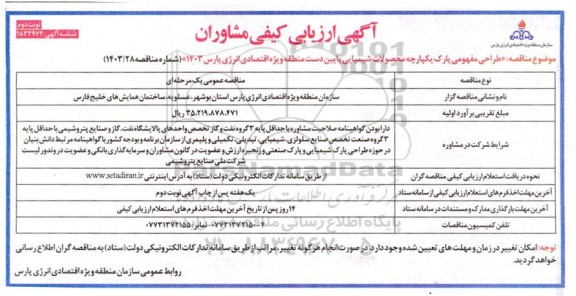 آگهی ارزیابی کیفی مشاوران
نوبت دوم
شناسه آگهی: ۱۸۳۲۹۷۲
سازمان منطقه ویژه اقتصادی انرژی پارس
موضوع مناقصه: «طراحی مفهومی پارک یکپارچه محصولات شیمیایی پایین دست منطقه ویژه اقتصادی انرژی پارس ۱۴۰۳» (شماره مناقصه ۱۴۰۳/۲۸)
نوع مناقصه
مناقصه عمومی یک مرحله‌ای
نام و نشانی مناقصه گزار
سازمان منطقه ویژه اقتصادی انرژی پارس استان بوشهر، عسلویه، ساختمان همایش های خلیج فارس
مبلغ تقریبی برآورد اولیه
۳۵.۲۱۹.۸۷۸.۴۷۱ ریال
شرایط شرکت در مشاوره
دارا بودن گواهینامه صلاحیت مشاوره با حداقل پایه ۳ گروه نفت و گاز تخصص واحدهای پالایشگاه نفت، گاز و صنایع پتروشیمی یا حداقل پایه
۳ گروه صنعت تخصص صنایع سلولزی، شیمیایی، تبدیلی، تکمیلی و پلیمری از سازمان برنامه و بودجه کشور یا گواهینامه مرتبط دانش بنیان
در حوزه طراحی پارک شیمیایی و پارک صنعتی و زنجیره ارزش و عضویت در کانون مشاوران و سرمایه گذاری بانکی و عضویت در وندور لیست
شرکت ملی صنایع پتروشیمی
نحوه دریافت استعلام ارزیابی کیفی مناقصه گران
از طریق سامانه تدارکات الکترونیکی دولت (ستاد) به آدرس اینترنتی www.setadiran.ir
آخرین مهلت اخذ فرم های استعلام ارزیابی کیفی از سامانه ستاد
یک هفته پس از چاپ آگهی نوبت دوم
آخرین مهلت بارگذاری مدارک و مستندات در سامانه ستاد
۱۴ روز پس از تاریخ آخرین مهلت اخذ فرم های استعلام ارزیابی کیفی
تلفن کمیسیون مناقصات
توجه: امکان تغییر در زمان و مهلت های تعیین شده وجود دارد، در صورت انجام هرگونه تغییر، مراتب از طریق سامانه تدارکات الکترونیکی دولت (ستاد) به مناقصه گران اطلاع رسانی
خواهد گردید.
روابط عمومی سازمان منطقه ویژه اقتصادی انرژی پارس